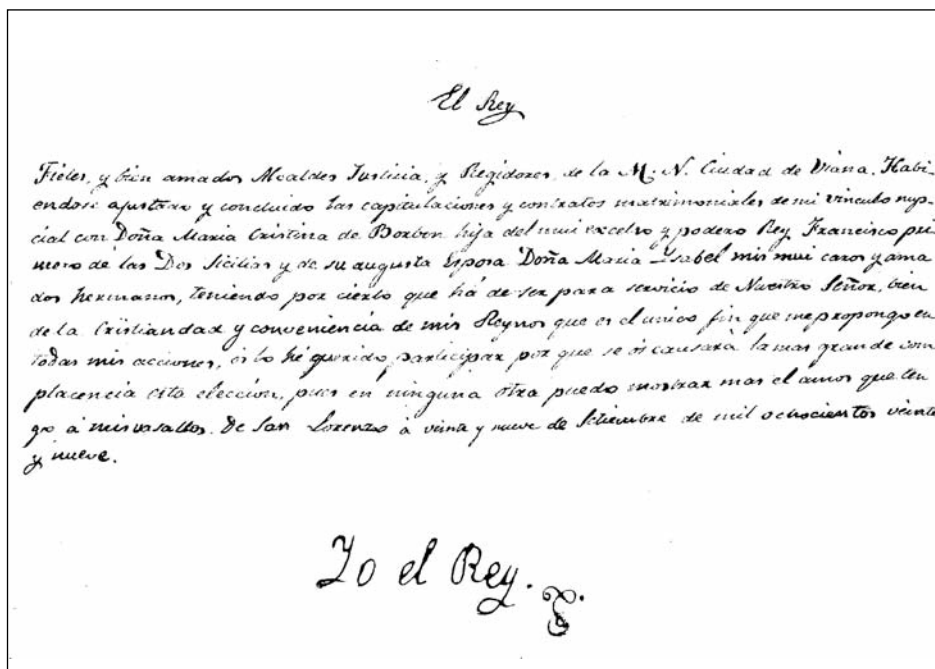 El Rey
Fieles, y bien amados Alcaldes Justicia, y Regidores, de la M. N. Ciudad de Viana. Habi-
endose ajustado y concluido las capitulaciones y contratos matrimoniales de mi vinculo nup-
cial con Doña Maria Cristina de Borbon hija del mui excelso y podero Rey Francisco pri
mero de las Dos Sicilias y de su augusta Esposa Doña Maria Ysabel mis mui caros y ama
dos hermanos, teniendo por cierto que há de ser para servicio de Nuestro Señor, bien
de la Cristiandad y conveniencia de mis Reynos que es el unico fin que me propongo en
todas mis acciones, os lo hé querido participar por que se ós causará la mas grande com
placencia esta elección, pues en ninguna otra puedo mostrar mas el amor que ten
go á mis vasallos. De San Lorenzo á veina y nueve de Setiembre de mil ochocientos veinte
y nueve.
Yo el Rey.